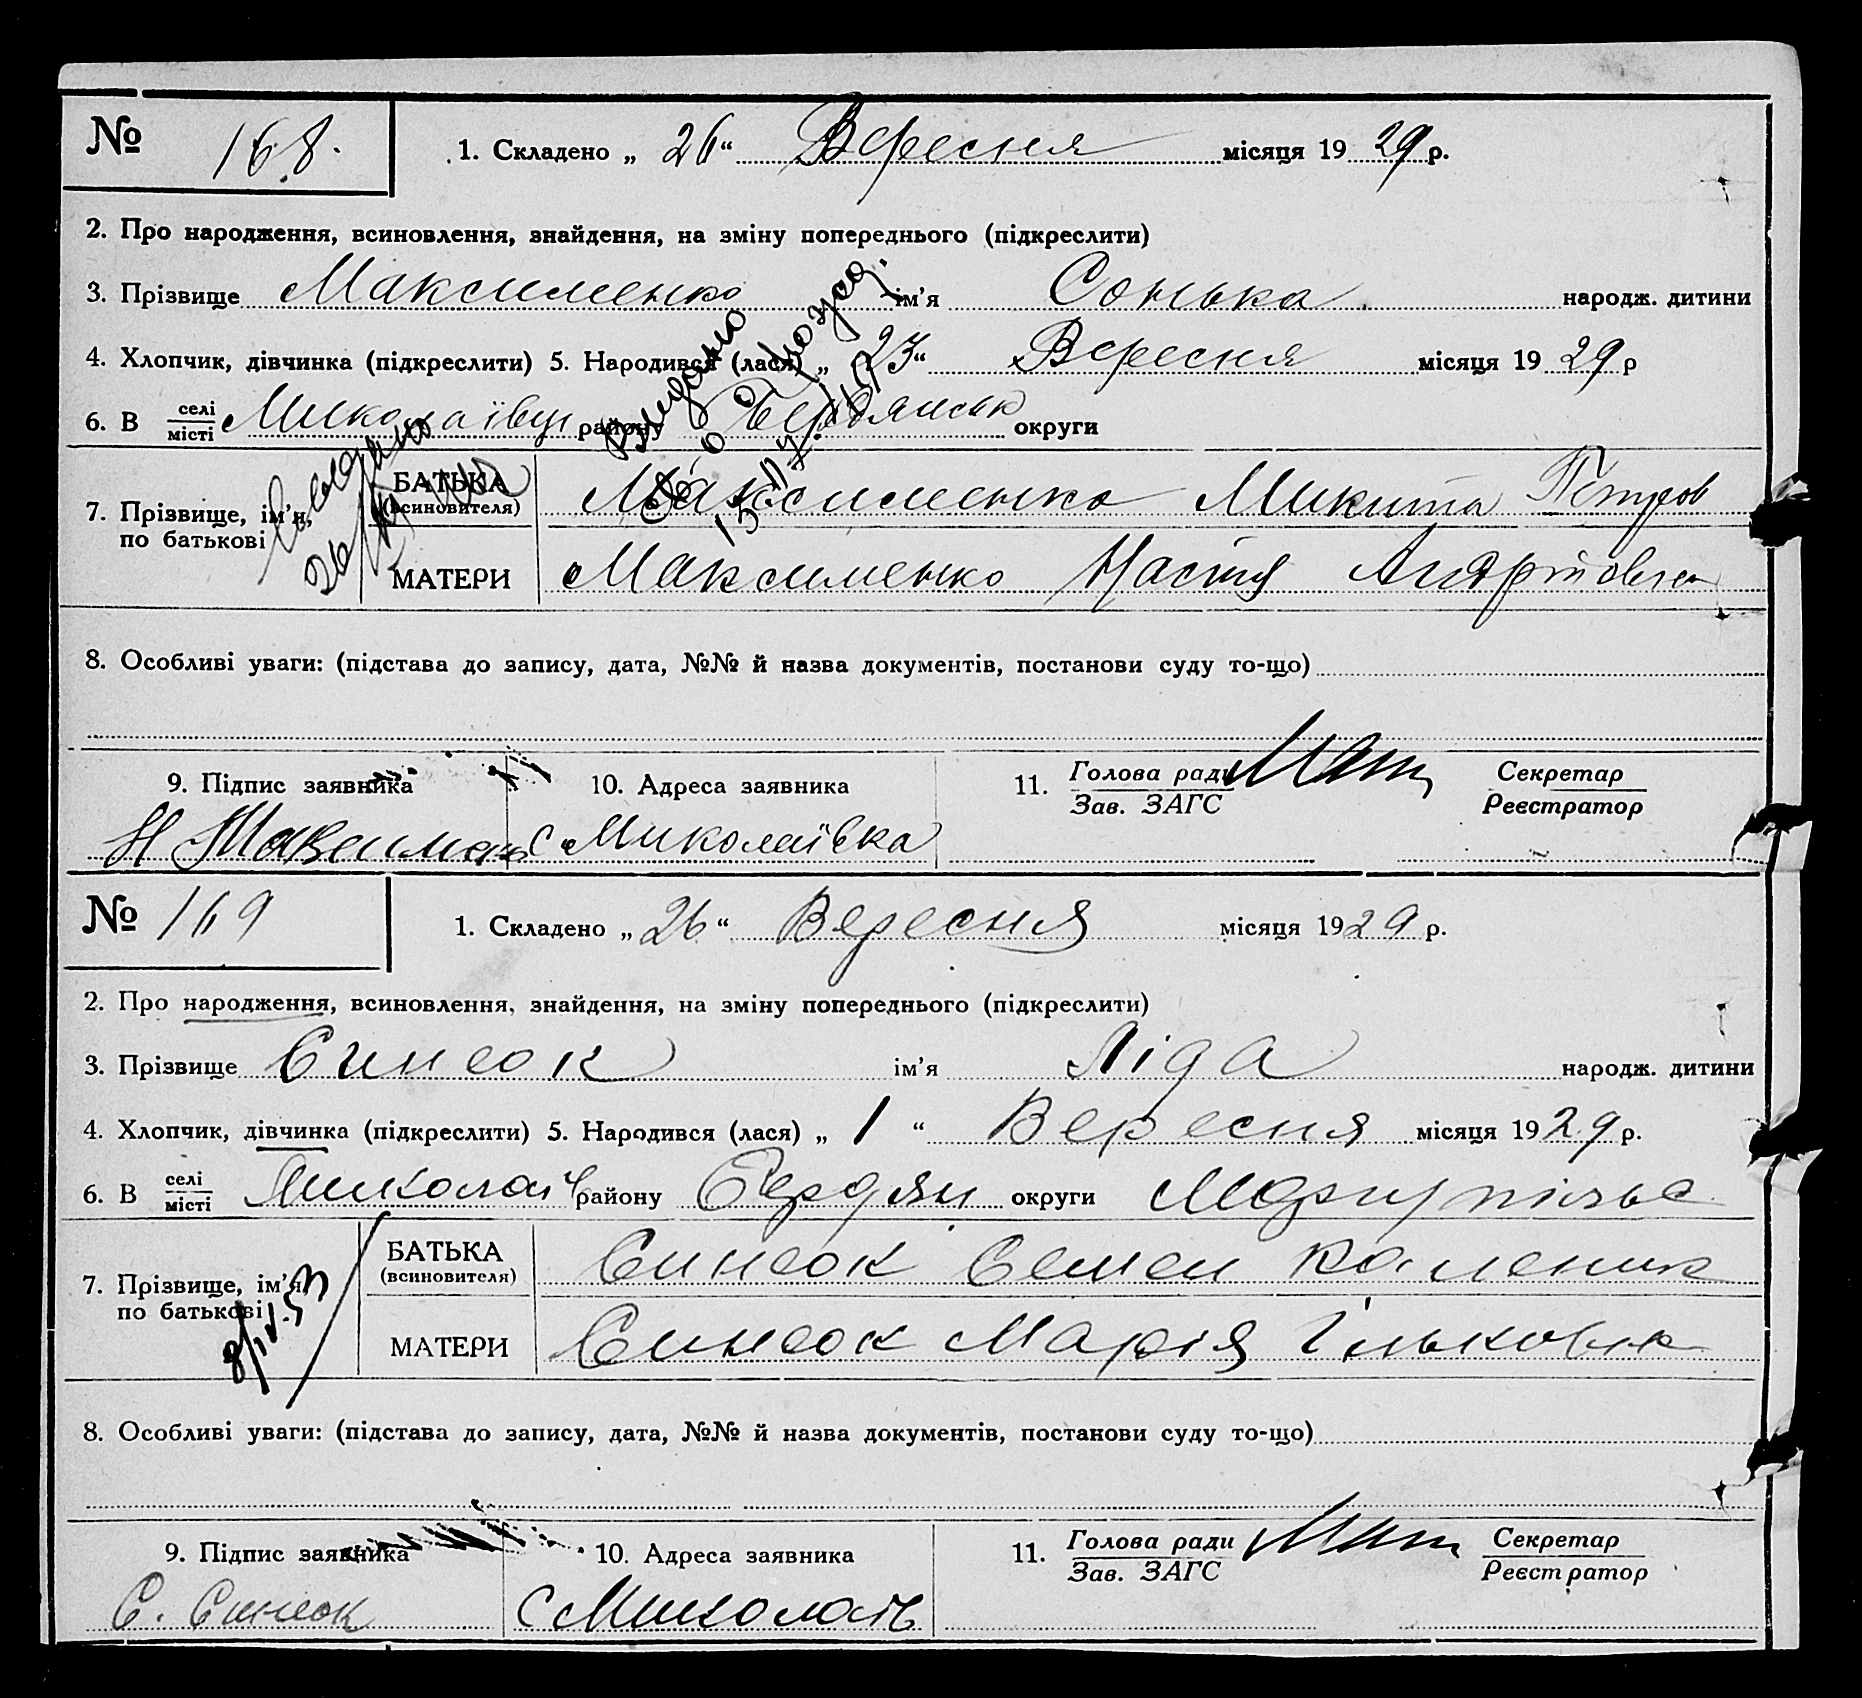 № 168. 1. Складено „ 26 “ Вересня місяця 19 29 р.
2. Про народження, всиновлення, знайдення, на зміну попереднього (підкреслити)
3. Прізвище Максименко ім'я Сонька народж. дитини
4. Хлопчик, дівчинка (підкреслити) 5. Народився (лася) „ 23 “ Вересня місяця 19 29 р
6. В селі місті Миколаївці району Бердянськ округи
Видано
7. Прізвище, ім'я, по батькові БАТЬКА (всиновителя) Максименко Микита Петров
МАТЕРИ Максименко Настя
8. Особливі уваги: (підстава до запису, дата, №№ й назва документів, постанови суду то-що)
9. Підпис заявника 10. Адреса заявника 11. Голова ради Зав. ЗАГС Секретар Реєстратор
Н с Миколаївка
№ 169 1. Складено „ 26 “ Вересня місяця 19 29 р.
2. Про народження, всиновлення, знайдення, на зміну попереднього (підкреслити)
3. Прізвище Синеок ім'я Ліда народж. дитини
4. Хлопчик, дівчинка (підкреслити) 5. Народився (лася) „ 1 “ Вересня місяця 19 29 р.
6. В селі місті Миколаїв району Бердян округи
7. Прізвище, ім'я по батькові БАТЬКА (всиновителя) Синеок Семен Каленик
МАТЕРИ Синеок Марія
8. Особливі уваги: (підстава до запису, дата, №№ й назва документів, постанови суду то-що)
9. Підпис заявника 10. Адреса заявника 11. Голова ради Зав. ЗАГС Секретар Реєстратор
С. Синеок с Миколаїв